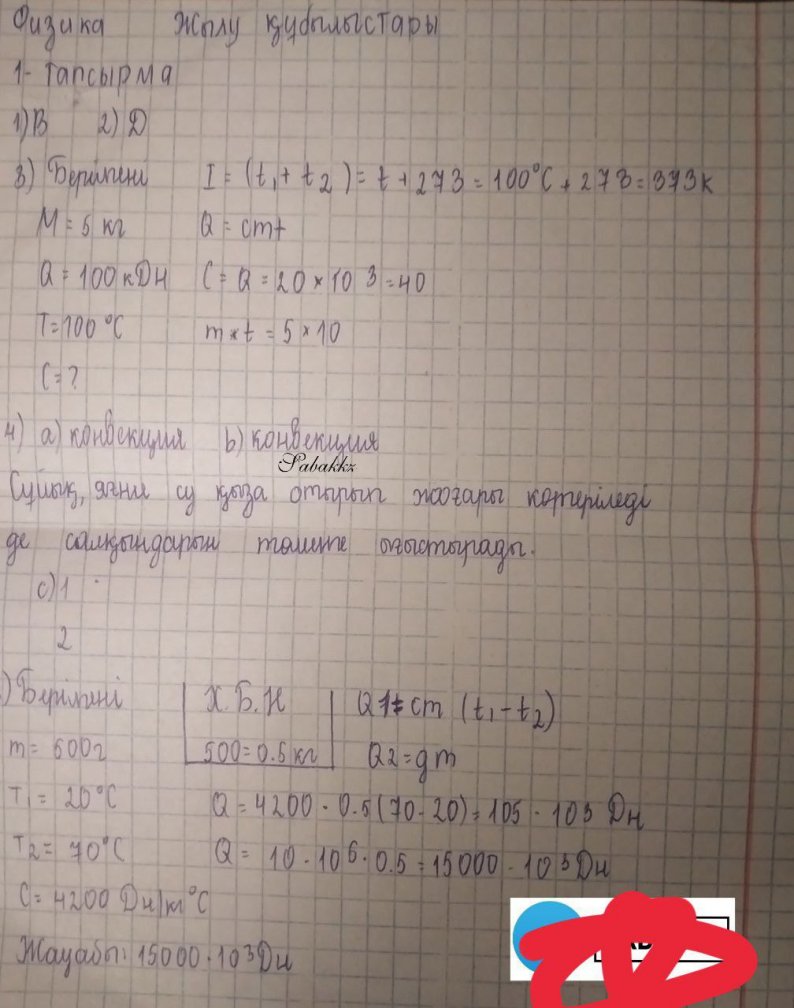 Физика Жылу құбылыстары
1- тапсырма
1) В 2) Д
3) Берілгені I = (t₁ + t₂) = t + 273 = 100°C + 273 = 373к
M = 5 кг Q = cmt
Q = 100 кДж C = Q = 20 × 10 3 = 40
T = 100°C m × t = 5 × 10
C = ?
4) a) конвекция b) конвекция
Sabakkz
Сұйық, яғни су қыза отырып жоғары көтеріледі
де салқындарын төменге ығыстырады.
c) 1
2
) Берілгені Х.Б.Ж Q1 = cm (t₁ - t₂)
m = 500г 500 = 0.5 кг Q2 = qm
T₁ = 20°C Q = 4200 · 0.5 (70 - 20) = 105 · 10³ Дж
T₂ = 70°C Q = 10 · 10⁶ · 0.5 = 15000 · 10³ Дж
C = 4200 Дж/кг°C
Жауабы: 15000 · 10³ Дж